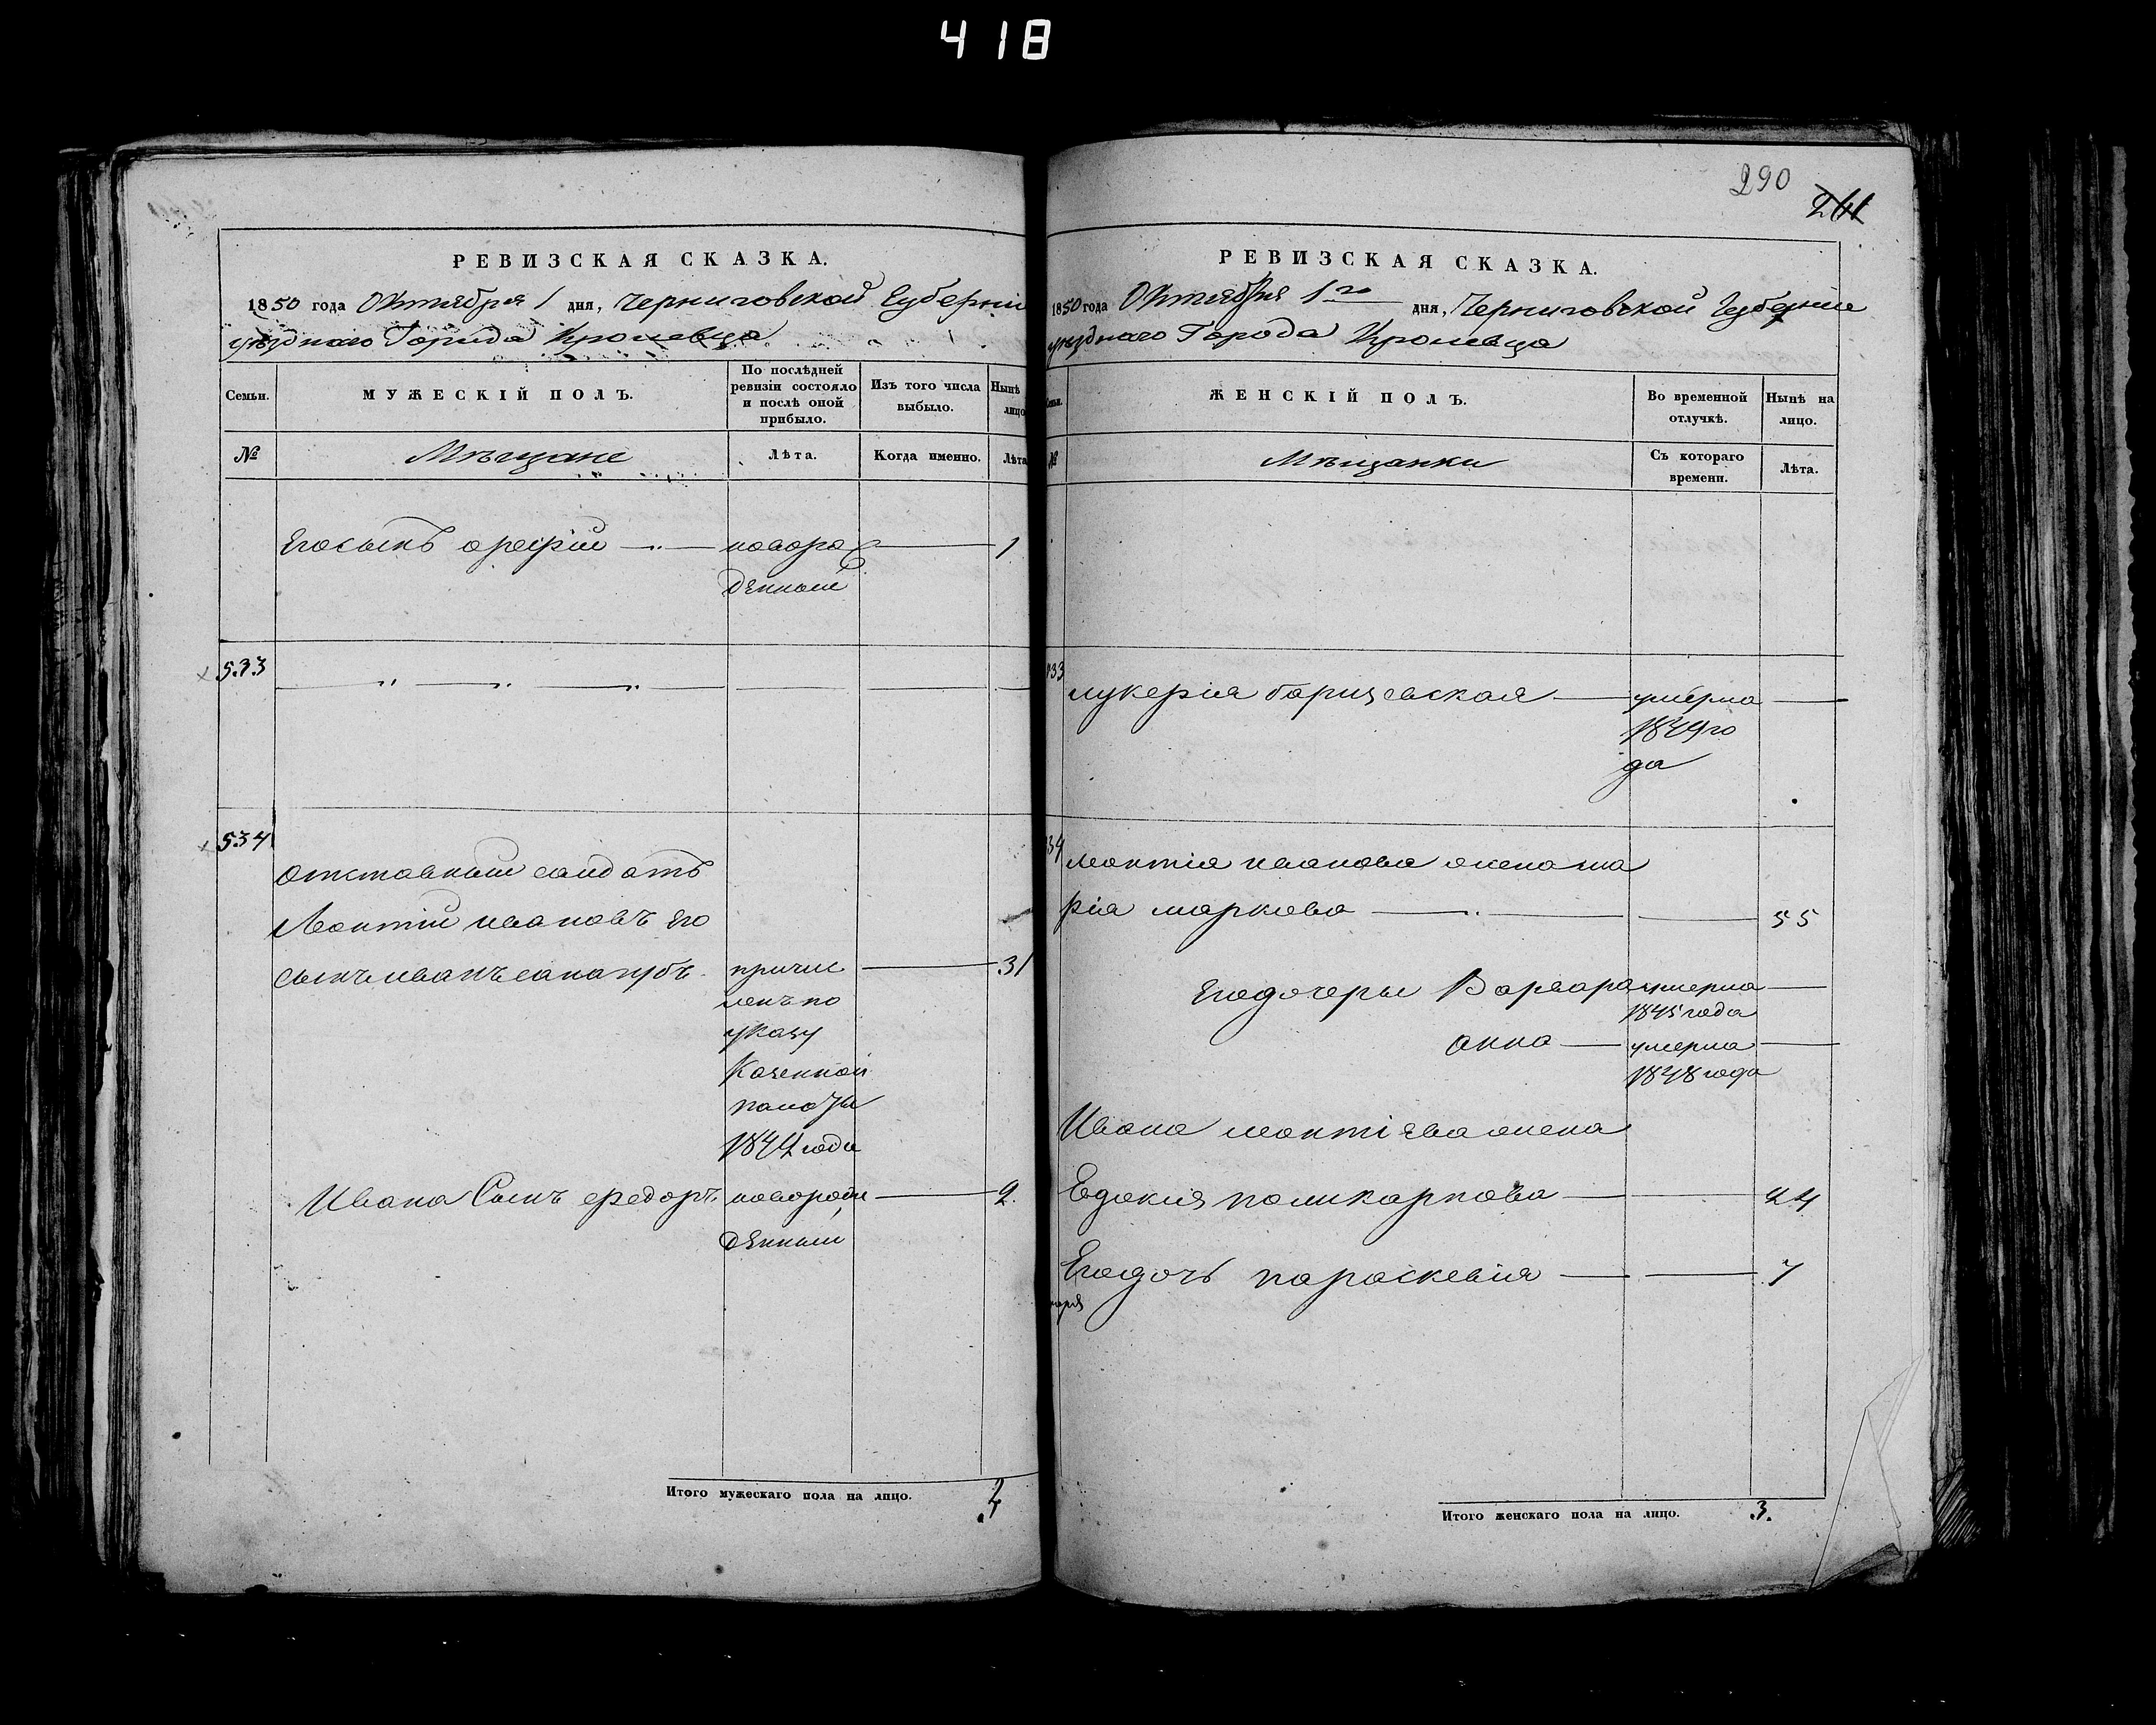 418
290
241
РЕВИЗСКАЯ СКАЗКА.
1850 года Октября 1 дня, Черниговской Губерніи
уѣзднаго Города Кролевца
Семьи.
МУЖЕСКІЙ ПОЛЪ.
По послѣдней ревизіи состояло и послѣ оной прибыло.
Изъ того числа выбыло.
Нынѣ лицо
№
Мѣщане
Лѣта.
Когда именно.
Лѣта
Его сынъ новоро 1
денный
533
534
отставный салдатъ
Леонтий ивановъ его
сынъ иванъ причис 31
ленъ по
указу
Казенной
палаты
1844 года
Ивана Сынъ федоръ новорож 2.
денный
Итого мужескаго пола на лицо.
РЕВИЗСКАЯ СКАЗКА.
1850 года Октября 1го дня, Черниговской Губерніи
уѣзднаго Города Кролевца
ЖЕНСКІЙ ПОЛЪ.
Во временной отлучкѣ.
Нынѣ на лицо.
№
Мѣщанки
Съ котораго времени.
Лѣта.
33
лукерія борщевская умерла
1849 го
да
34
леонтія иванова жена ма
рія маркова 55
Его дочеры Варвара умерла
1845 года
анна умерла
1848 года
Ивана леонтіева жена
Евдокия поликарпова 24
Его дочь параскевия 7
Итого женскаго пола на лицо. 3.